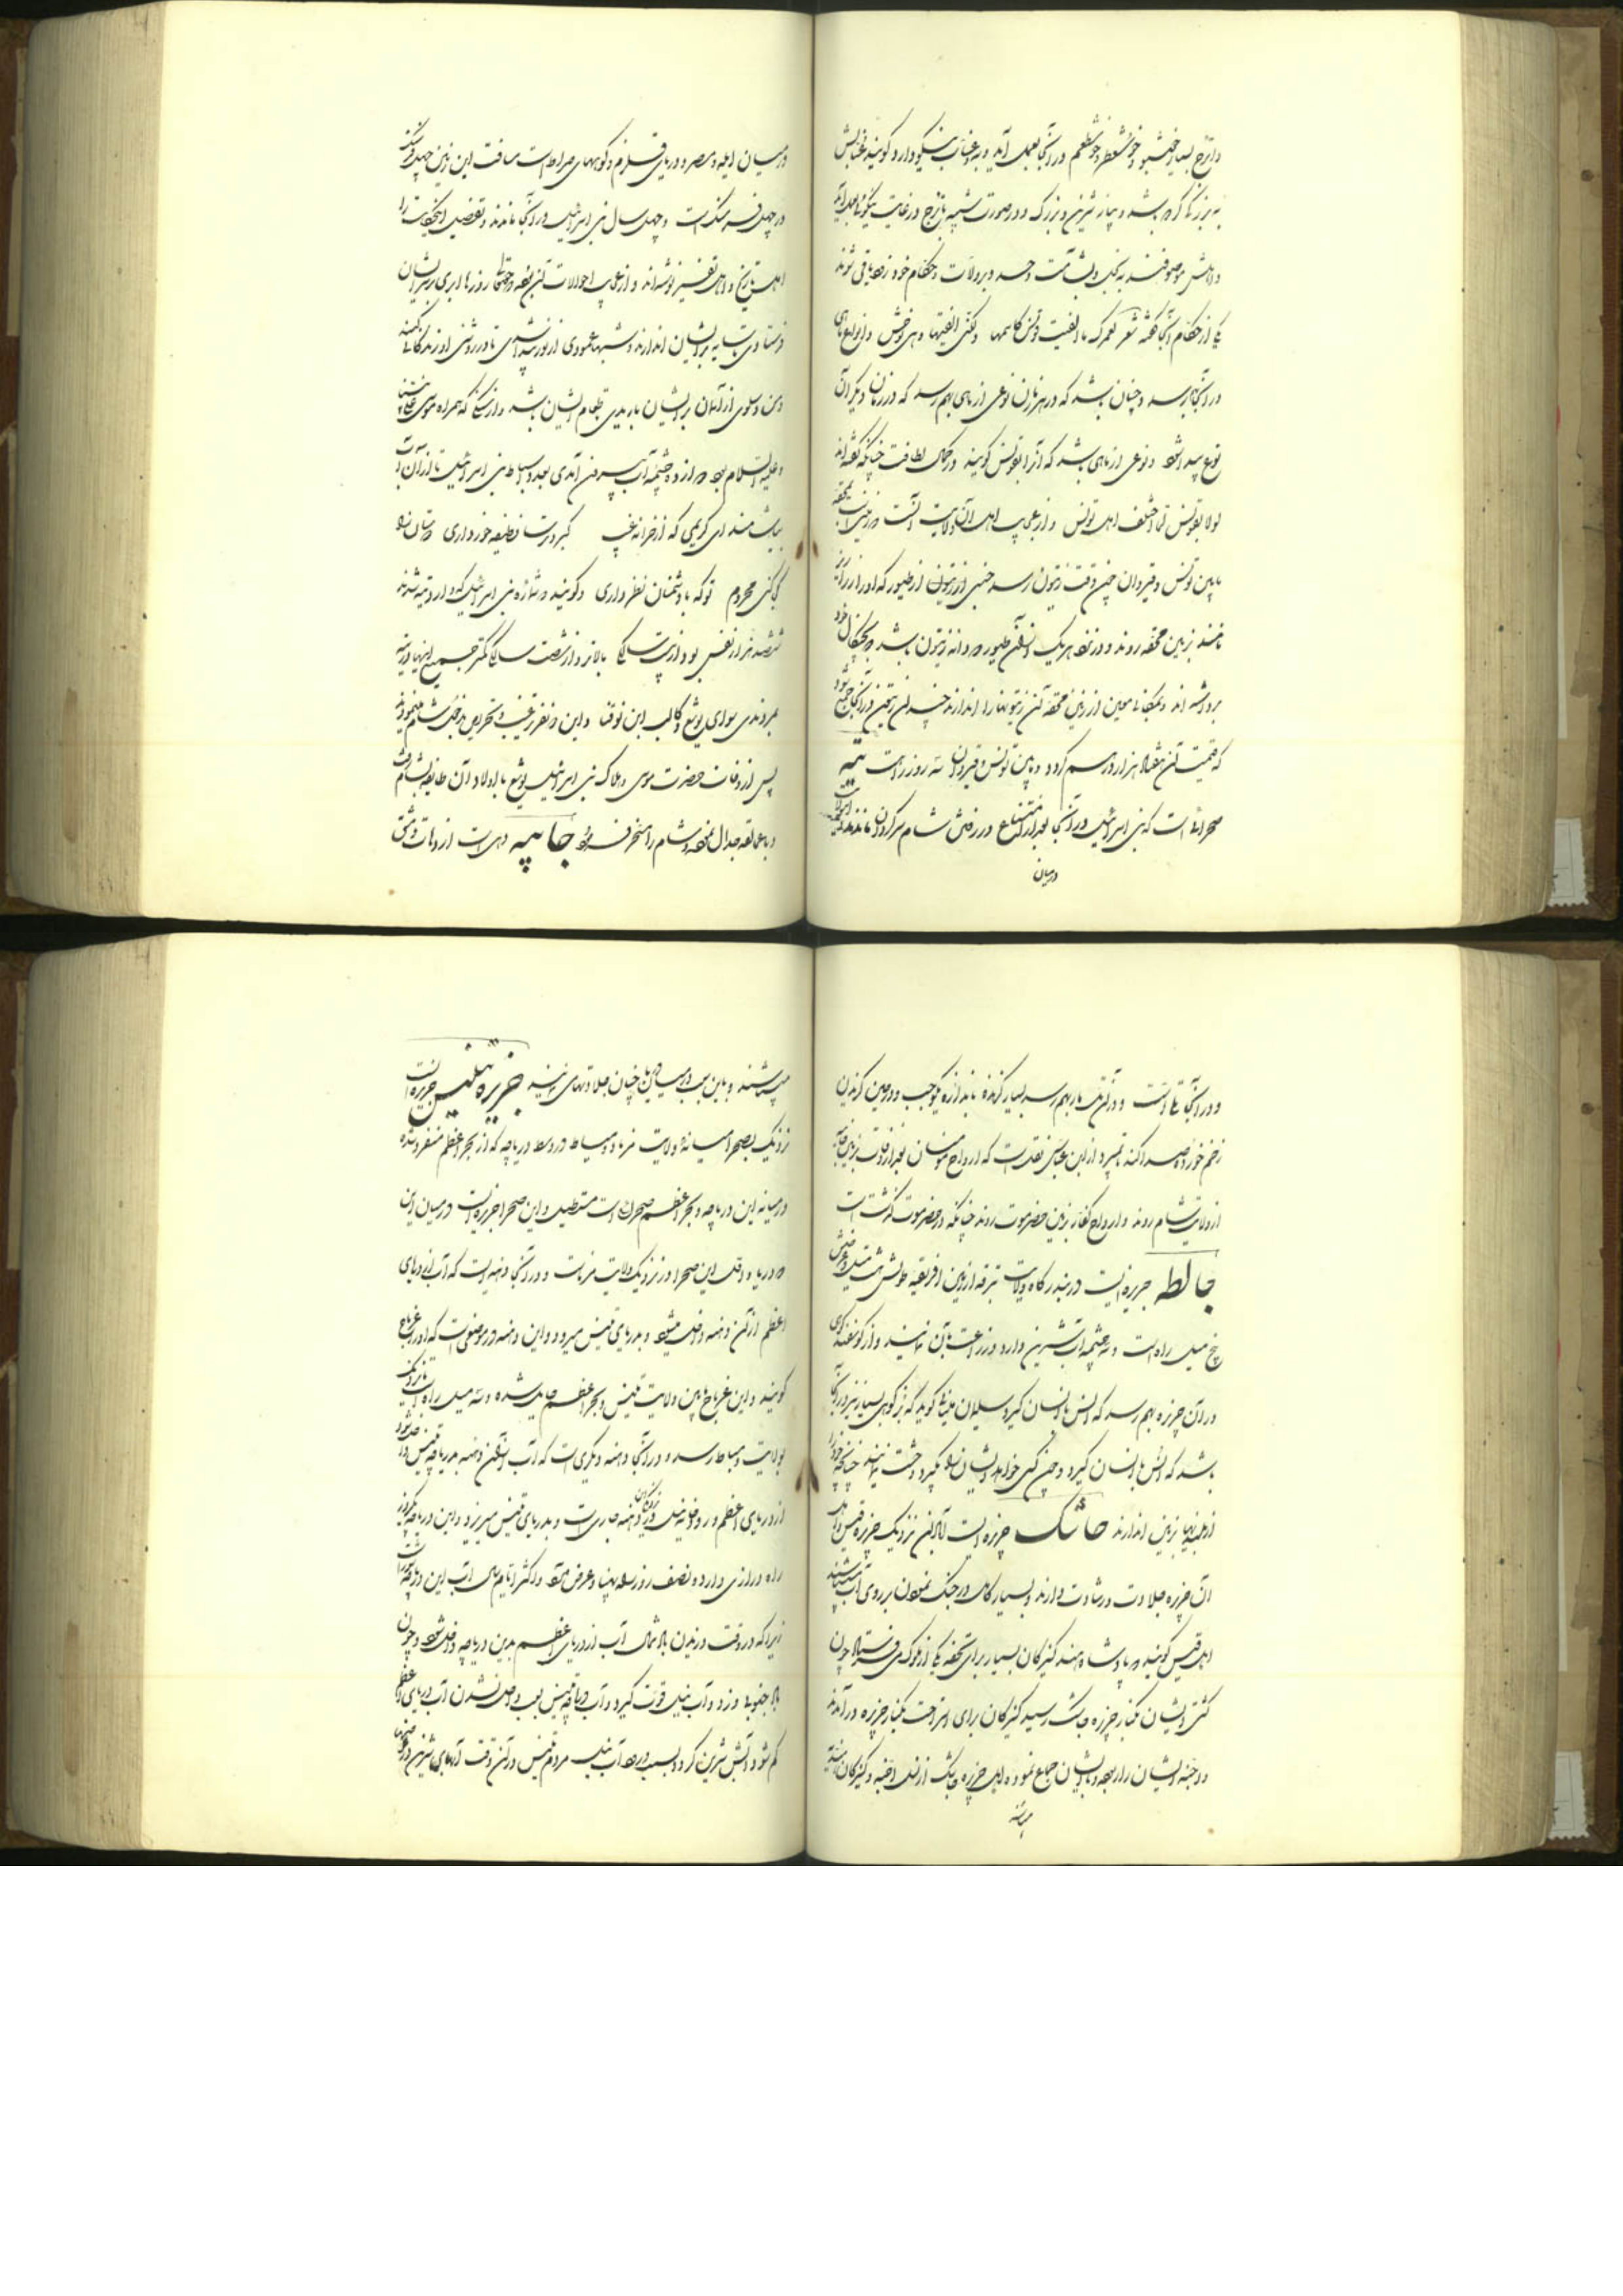 و اترج بسیار خوشبو و خوش منظر و خوش طعم در آنجا بعمل آید و به و عناب نیکو دارد گویند عنابش
به بزرگی گردو باشد و پیاز شیرین و بزرگ و در صورت شبیه باترج در غایت نیکوئی بعمل آید
و اهلش موصوفند به نیکی
یکی از حکام آنجا گفته شعر لعمرک ما الفیت تونس کاسمها ولکنی الفیتها وهی توحش و انواع ماهی
در آنجا برسد و چنان باشد که در هر زمان نوعی از ماهی بهم رسد که در زمان دیگر آن
نوع پیدا نشود و نوعی از ماهی باشد که آنرا بقونس گویند در کمال لطافت چنانکه گفته اند
لولا بقونس لما اختلف اهل تونس و از عجایب اهل آن ولایت آنست در زمین
مابین تونس و قیروان چون وقت زیتون رسد جنسی از طیور که او را زرازیر
نامند بزمین محقه روند و در نزد هر یک از آن طیور دو دانه زیتون باشد بچنگال خود
برداشته اند و بمکانی معین از زمین محقه آن زیتونها را اندازند چندان زیتون در آنجا جمع شود
که قیمت آن هفتاد هزار درهم گردد و مابین تونس و قیروان سه روزه راه است تیه
صحرائی است که بنی اسرائیل در آنجا بعد از امتناع در رفتن شام سرگردان ماندند
درمیان
درمیان ایله و مصر و دریای قلزم و کوههای سراه است مسافت این زمین چهل فرسنگ
در چهل فرسنگ است و چهل سال بنی اسرائیل در آنجا ماندند و تفصیل این حکایت را
اهل تاریخ و اهل تفسیر نوشته اند و از عجایب احوالات آن بقعه حق تعالی روزها ابری بر سر ایشان
فرستادی تا سایه بر ایشان اندازند و شبها عمودی از نور پیدا شدی تا در روشنی او زندگانی کنند
و من و سلوی از آسمان بر ایشان باریدی طعام ایشان باشد و از سنگی که همراه موسی علی نبینا
و علیه السلام بود دوازده چشمه آب بیرون آمدی بعدد اسباط بنی اسرائیل تا از آن آب
بیاشامند ای کریمی که از خزانه غیب گبر و ترسا وظیفه خور داری دوستان را
کجا کنی محروم تو که با دشمنان نظر داری و گویند در شماره بنی اسرائیل که وارد تیه شدند
ششصد هزار نفس بود از بیست سالگی بالاتر و از شصت سالگی کمتر جمیع اینها در تیه
بمردندی سوای یوشع و کالب ابن یوقنا و این دو نفر ترغیب و تحریص بر دخول شام مینمودند
پس از وفات حضرت موسی و هلاک بنی اسرائیل یوشع با اولاد آن طایفه بشام رفت
و با عمالقه جدال نموده شام را مسخر فرمود جابیه دهی است از دهات دمشق
و در آنجا تلی است و در آن تل مار بهم رسد بسیار گزنده باندازه یکوجب و در حین گزیدن
زخم خورده صدا کند بمیرد از ابن عباس نقل است که ارواح مؤمنان بعد از وفات بزمین جابیه
از ولایت شام روند و ارواح کفار بزمین حضرموت روند چنانکه در حضرموت گذشت است
جالطه جزیره ایست در بندرگاه ولایت تبرقه از زمین افریقیه طولش هشت میل و عرضش
پنج میل راه است و سه چشمه آب شیرین دارد و زراعت بآن نمایند و از گوسفند کوهی
در آن جزیره بهم رسد که انس با انسان گیرد سلیمان ملتانی گوید که بز کوهی بسیار نیز در آنجا
باشد که انس با انسان گیرد و چون کسی خواهد ایشان را بگیرد وحشت نمایند چنانچه خود را
از بلندیها بزمین اندازند جاشک جزیره ایست کلان نزدیک جزیره قیس و اهل
آن جزیره جلادت و رشادت دارند و بسیار کامل در جنگ نمودن بر روی آب میباشند
اهل قیس گویند که پادشاه هند کنیزکان بسیار برای تحفه یکی از ملوک می فرستاد چون
کشتی ایشان بکنار جزیره جاشک رسید کنیزکان برای استراحت بکنار جزیره در آمدند
و جنیه ایشان را ربوده و با ایشان جماع نموده اهل جزیره جاشک از نسل اجنه و کنیزکان
میباشند
میباشند و باین سبب در میان دریا چنان جلادتهای نمایند جزیره تنیس جزیره ایست
نزدیک بصحرا میانه ولایت فرما و دمیاط در وسط دریاچه که از بحر اعظم منفرد شده
درمیانه این دریاچه و بحر اعظم صحرائی است مستطیل و این صحرا جزیره ایست درمیان این
دو دریا و اول این صحرا در نزدیک ولایت فرماست و در آنجا دهنه ایست که آب از دریای
اعظم از آن دهنه داخل میشود و بدریای تنیس میرود و این دهنه در موضعی است که او را غرباج
گویند و این غرباج مابین ولایت تنیس و بحر اعظم حایل شده و سه میل راه است تا نزدیک
بولایت دمیاط رسد و در آنجا دهنه دیگری است که آب از آن دهنه بدریاچه تنیس داخل شود
از دریای اعظم و رودخانه نیل در نزدیکی آن دهنه جاری است و بدریای تنیس میریزد و این دریاچه یکروزه
راه درازی دارد و نصف روز راه پهنا و عرض آن و اکثر ایام سال آب این دریاچه شور است
زیرا که در وقت وزیدن باد شمال آب از دریای اعظم بدین دریاچه داخل شود و چون
باد جنوب وزد و آب نیل قوت گیرد و آب دریاچه تنیس بسبب داخل نشدن آب دریای اعظم
کم شود و آبش شیرین گردد بسبب ورود آب نیل مردم تنیس در آن وقت آبهای شیرین در